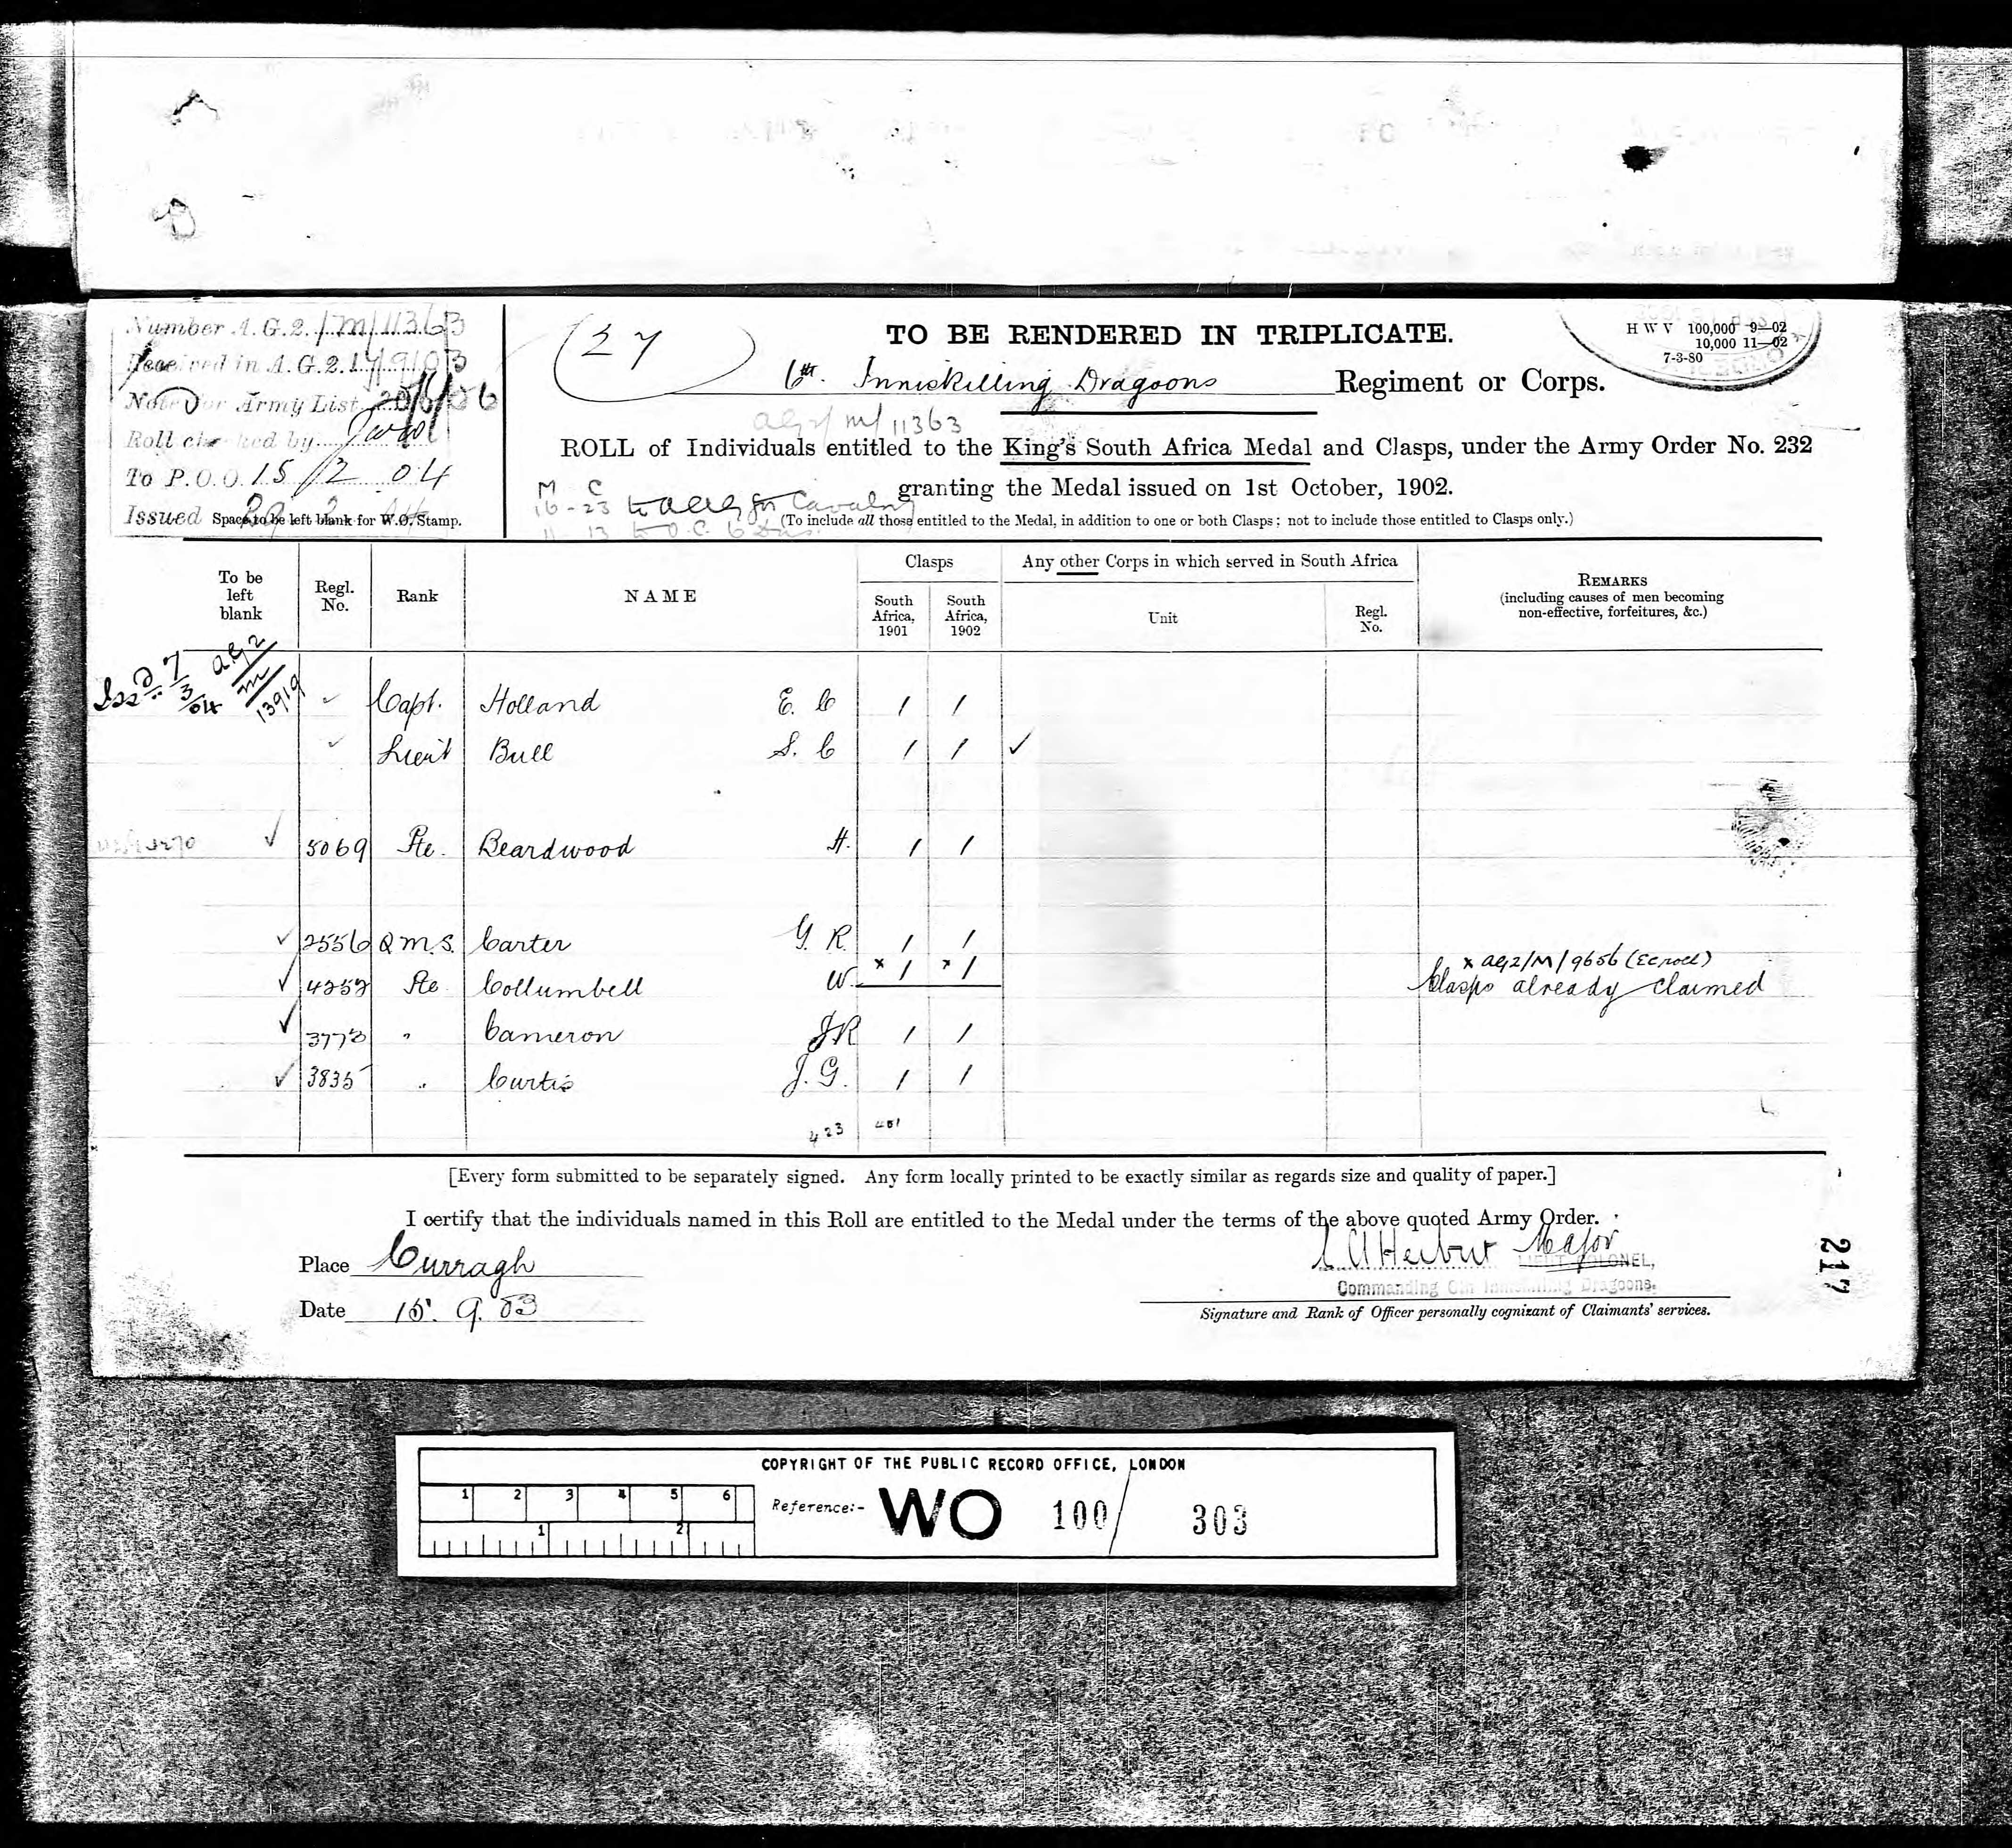 Number A.G.2. /M/11363
Received in A.G.2. 17/9/03
Noted for Army List 20/6/06
Roll checked by
To P.O.O. 15/2 04
Issued 29 2 04
Space to be left blank for W.O. Stamp.
(27)
TO BE RENDERED IN TRIPLICATE.
H W V 100,000 9—02
10,000 11—02
7-3-80
6th. Inniskilling Dragoons Regiment or Corps.
AG2/M/11363
ROLL of Individuals entitled to the King's South Africa Medal and Clasps, under the Army Order No. 232
granting the Medal issued on 1st October, 1902.
M C
16 - 23 to for Cavalry
11 - 13 to O.C. 6 Dns.
(To include all those entitled to the Medal, in addition to one or both Clasps; not to include those entitled to Clasps only.)
To be left blank
Regl. No.
Rank
NAME
Clasps
South Africa, 1901
South Africa, 1902
Any other Corps in which served in South Africa
Unit
Regl. No.
REMARKS
(including causes of men becoming non-effective, forfeitures, &c.)
Issd 7/3/04 AG2/M/13919
✓ Capt. Holland E. C / /
✓ Lieut Bull S. C / / ✓
✓ 5069 Pte. Beardwood H. / /
✓ 2556 Q.M.S. Carter G. R. / /
x AG2/M/9656 (EC roll)
✓ 4252 Pte Collumbell W. x / x / Clasps already claimed
✓ 3773 " Cameron J R / /
✓ 3835 " Curtis J. G. / /
423 401
[Every form submitted to be separately signed. Any form locally printed to be exactly similar as regards size and quality of paper.]
I certify that the individuals named in this Roll are entitled to the Medal under the terms of the above quoted Army Order.
Place Curragh
Herbert Major
LIEUT COLONEL,
Commanding 6th Inniskilling Dragoons.
Date 15. 9. 03
Signature and Rank of Officer personally cognizant of Claimants' services.
217
COPYRIGHT OF THE PUBLIC RECORD OFFICE, LONDON
1 2 3 4 5 6
Reference:- WO 100/ 303
1 2